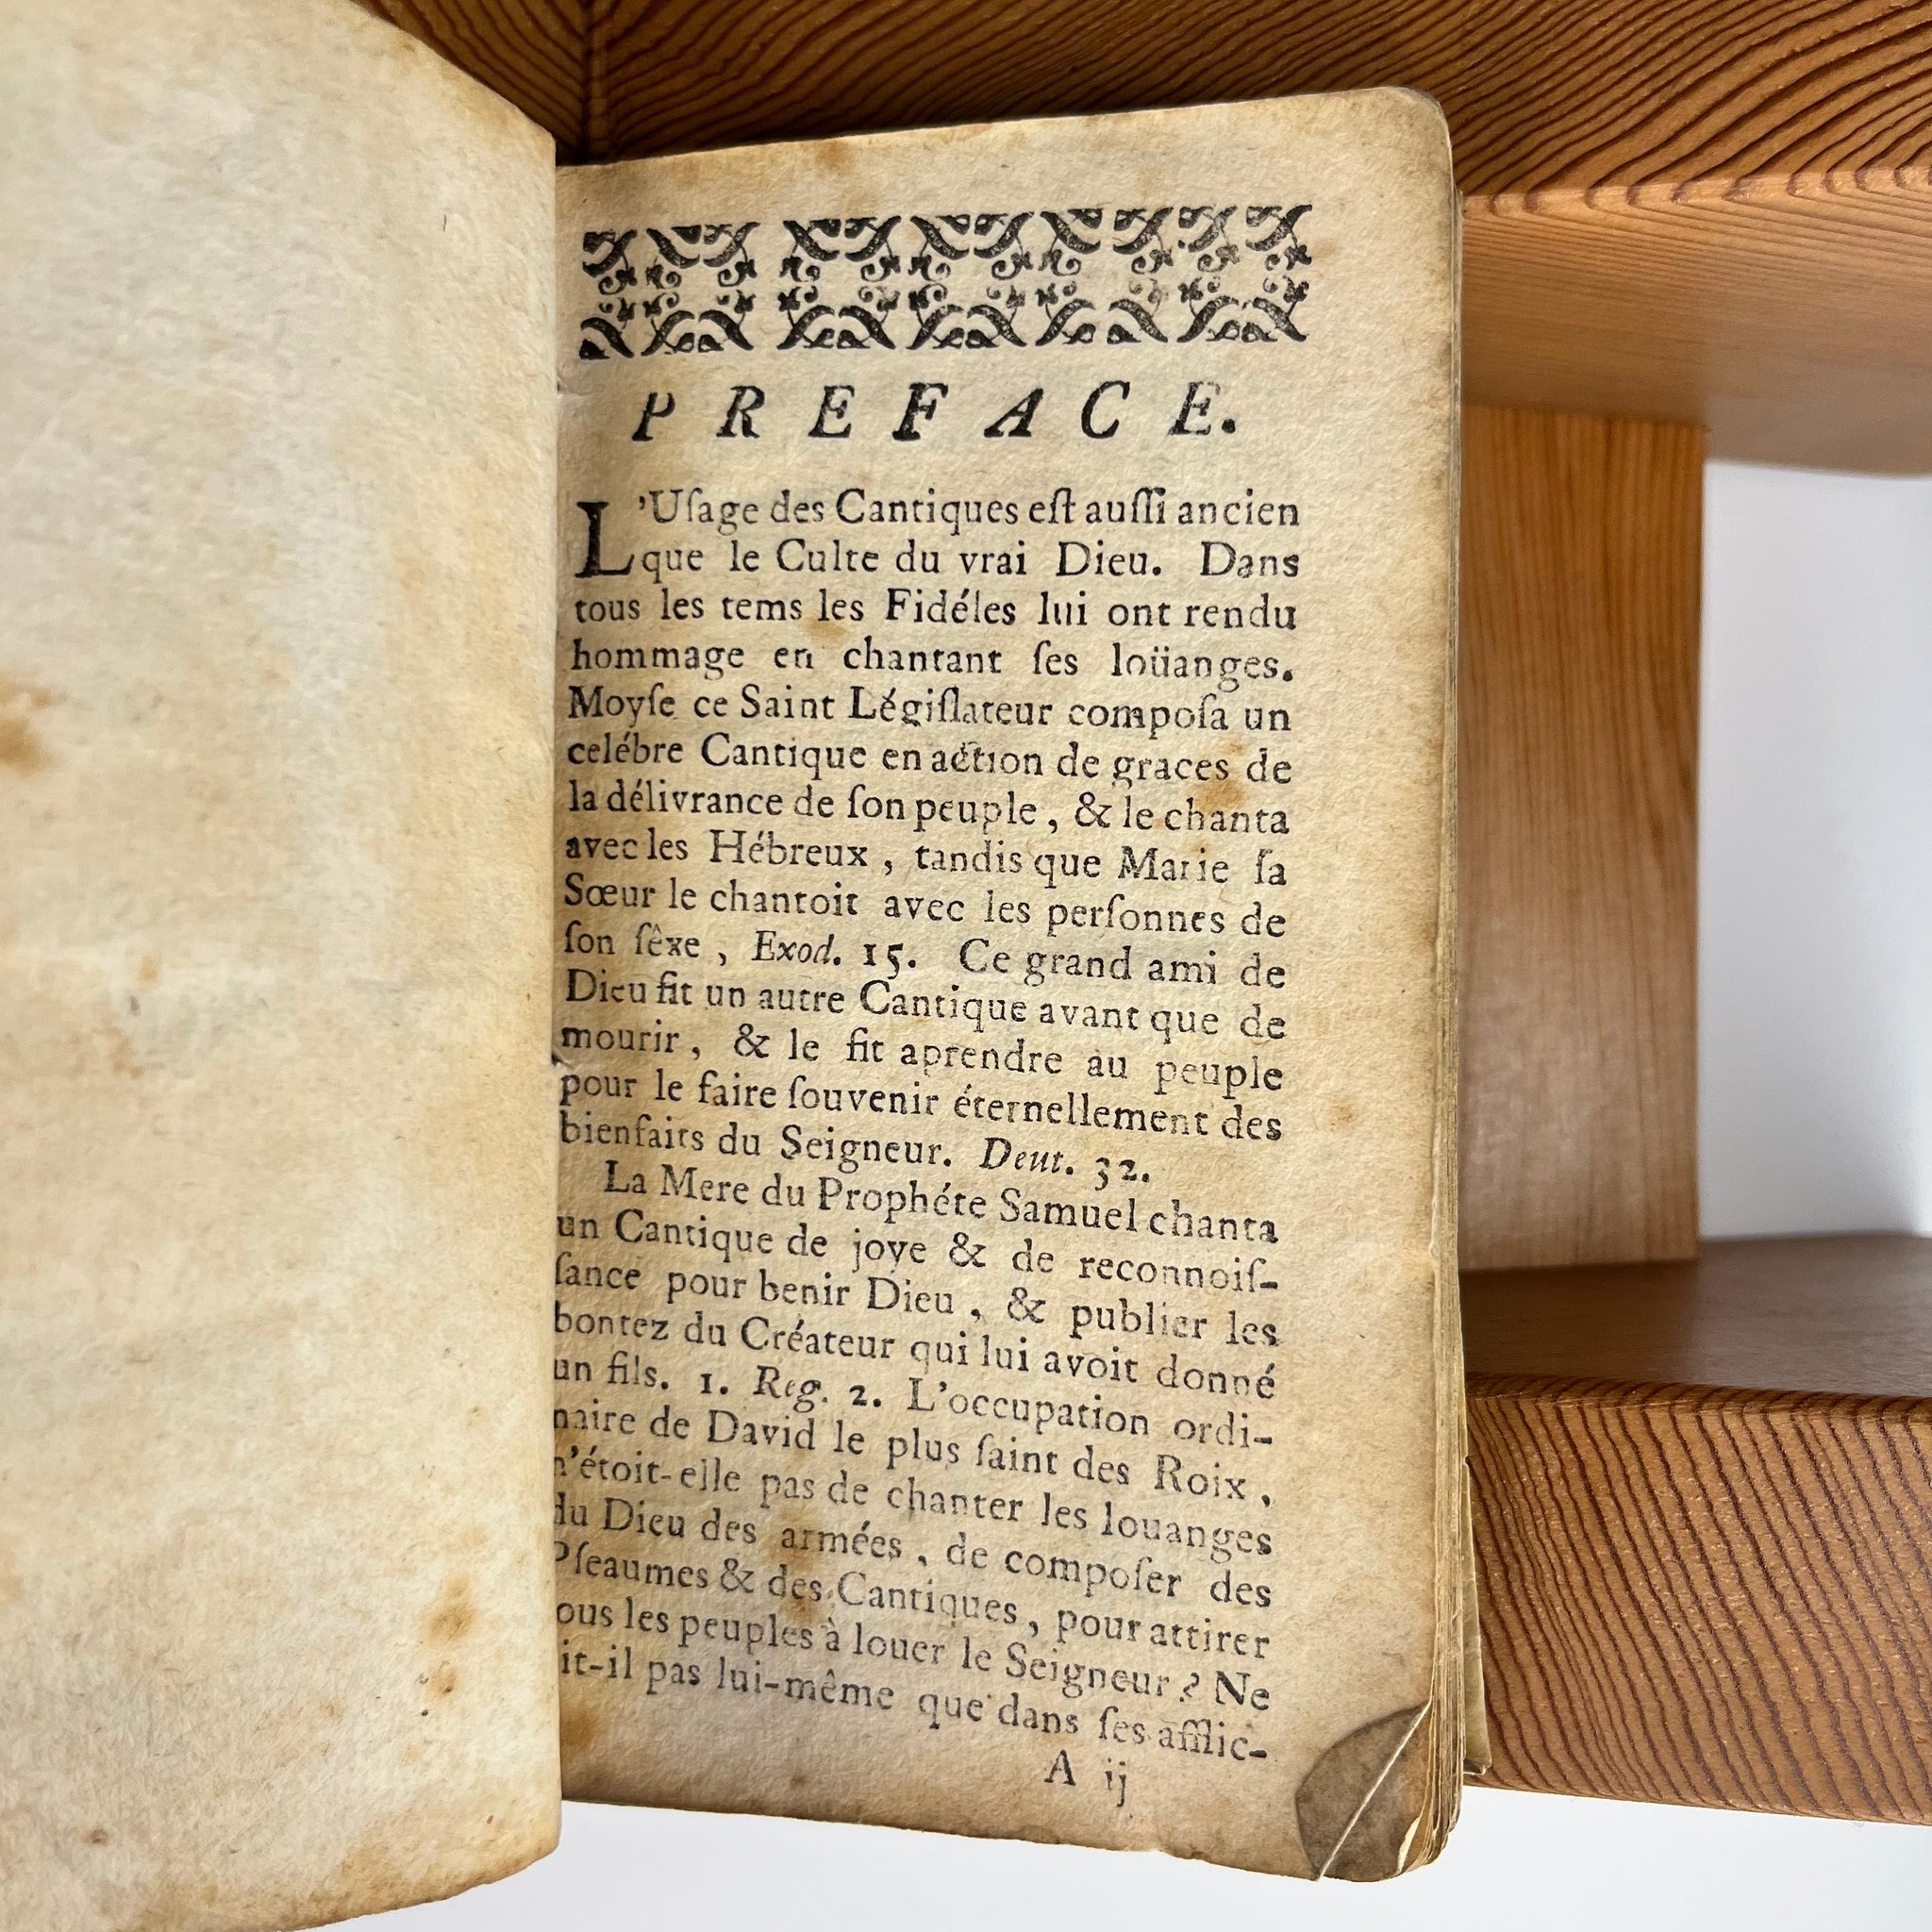 PREFACE.
L'Uſage des Cantiques eſt auſſi ancien
que le Culte du vrai Dieu. Dans
tous les tems les Fidéles lui ont rendu
hommage en chantant ſes loüanges.
Moyſe ce Saint Légiſlateur compoſa un
celébre Cantique en action de graces de
la délivrance de ſon peuple, & le chanta
avec les Hébreux, tandis que Marie ſa
Sœur le chantoit avec les perſonnes de
ſon ſêxe, Exod. 15. Ce grand ami de
Dieu fit un autre Cantique avant que de
mourir, & le fit aprendre au peuple
pour le faire ſouvenir éternellement des
bienfaits du Seigneur. Deut. 32.
La Mere du Prophéte Samuel chanta
un Cantique de joye & de reconnoiſ-
ſance pour benir Dieu, & publier les
bontez du Créateur qui lui avoit donné
un fils. 1. Reg. 2. L'occupation ordi-
naire de David le plus ſaint des Roix,
n'étoit-elle pas de chanter les louanges
du Dieu des armées, de compoſer des
Pſeaumes & des Cantiques, pour attirer
ous les peuples à louer le Seigneur? Ne
it-il pas lui-même que dans ſes afflic-
A ij